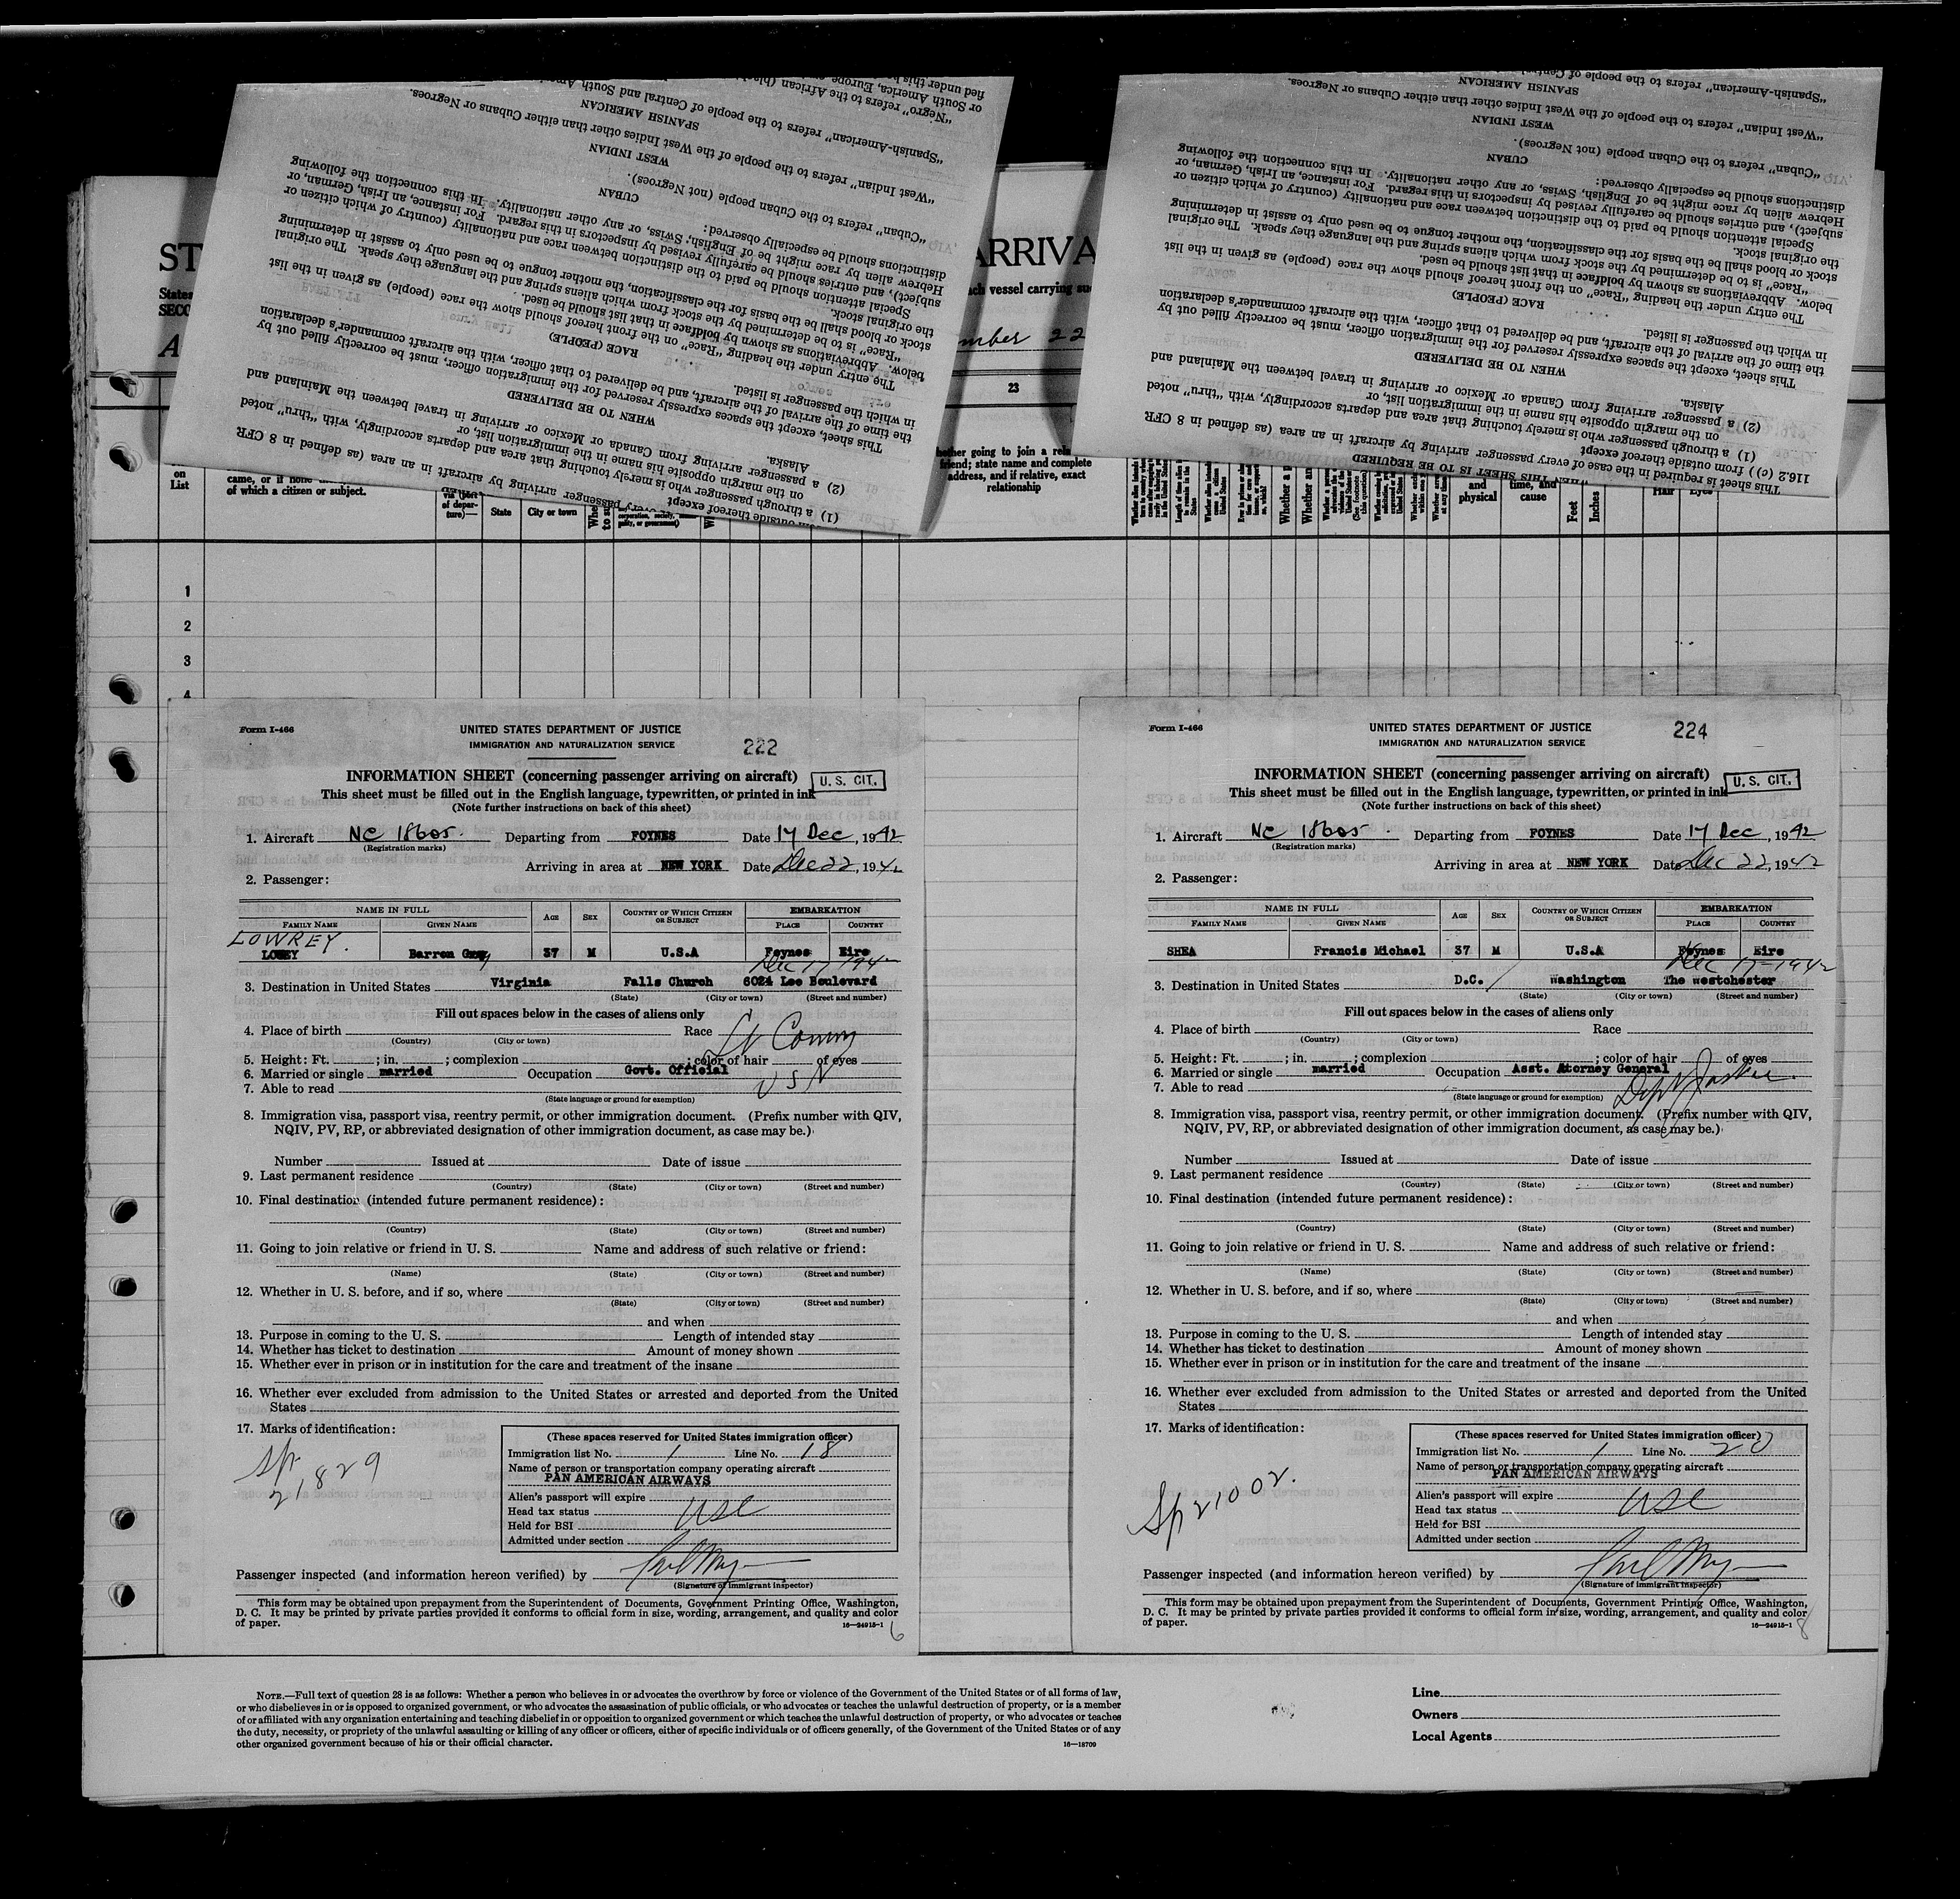 fied under this
or South America, Europe,
"Negro" refers to the African (black)
"Spanish-American" refers to the people of Central and South
SPANISH AMERICAN
"West Indian" refers to the people of the West Indies other than either Cubans or Negroes.
WEST INDIAN
"Cuban" refers to the Cuban people (not Negroes).
CUBAN
distinctions should be especially observed:
Hebrew alien by race might be of English, Swiss, or any other nationality. In this connection the following
subject), and entries should be carefully revised by inspectors in this regard. For instance, an Irish, German, or
Special attention should be paid to the distinction between race and nationality (country of which citizen or
the original stock.
stock or blood shall be the basis for the classification, the mother tongue to be used only to assist in determining
"Race" is to be determined by the stock from which aliens spring and the language they speak. The original
below. Abbreviations as shown by boldface in that list should be used.
The entry under the heading "Race" on the front hereof should show the race (people) as given in the list
RACE (PEOPLE)
in which the passenger is listed.
the time of the arrival of the aircraft, and be delivered to that officer, with the aircraft commander's declaration
This sheet, except the spaces expressly reserved for the immigration officer, must be correctly filled out by
WHEN TO BE DELIVERED
Alaska.
(2) a passenger arriving from Canada or Mexico or arriving in travel between the Mainland and
on the margin opposite his name in the immigration list, or
(1) a through passenger who is merely touching that area and departs accordingly, with "thru" noted
outside thereof except
passenger arriving by aircraft in an area (as defined in 8 CFR
"Spanish-American" refers to the people of Central
SPANISH AMERICAN
"West Indian" refers to the people of the West Indies other than either Cubans or Negroes.
WEST INDIAN
"Cuban" refers to the Cuban people (not Negroes).
CUBAN
distinctions should be especially observed:
Hebrew alien by race might be of English, Swiss, or any other nationality. In this connection the following
subject), and entries should be carefully revised by inspectors in this regard. For instance, an Irish, German, or
Special attention should be paid to the distinction between race and nationality (country of which citizen or
the original stock.
stock or blood shall be the basis for the classification, the mother tongue to be used only to assist in determining
"Race" is to be determined by the stock from which aliens spring and the language they speak. The original
below. Abbreviations as shown by boldface in that list should be used.
The entry under the heading "Race" on the front hereof should show the race (people) as given in the list
RACE (PEOPLE)
in which the passenger is listed.
the time of the arrival of the aircraft, and be delivered to that officer, with the aircraft commander's declaration
This sheet, except the spaces expressly reserved for the immigration officer, must be correctly filled out by
WHEN TO BE DELIVERED
Alaska.
(2) a passenger arriving from Canada or Mexico or arriving in travel between the Mainland and
on the margin opposite his name in the immigration list, or
(1) a through passenger who is merely touching that area and departs accordingly, with "thru" noted
116.2 (c)) from outside thereof except
This sheet is required in the case of every passenger arriving by aircraft in an area (as defined in 8 CFR
WHEN THIS SHEET IS TO BE REQUIRED
ST
ARRIVA
States
ach vessel carrying su
SECO
A
mber 22
23
going to join a
friend; state name and complete
address, and if relative, exact
relationship
on
List
came, or if none
of which a citizen or subject.
State
City or town
and
physical
time, and
cause
Feet
Inches
Hair
Eyes
1
2
3
4
Form I-466
UNITED STATES DEPARTMENT OF JUSTICE
IMMIGRATION AND NATURALIZATION SERVICE
222
INFORMATION SHEET (concerning passenger arriving on aircraft)
U. S. CIT.
This sheet must be filled out in the English language, typewritten, or printed in ink
(Note further instructions on back of this sheet)
1. Aircraft NC 18605. Departing from FOYNES Date 17 Dec, 1942
(Registration marks)
Arriving in area at NEW YORK Date Dec 22, 1942
2. Passenger:
NAME IN FULL AGE SEX COUNTRY OF WHICH CITIZEN OR SUBJECT EMBARKATION
FAMILY NAME GIVEN NAME PLACE COUNTRY
LOWREY.
Barron 37 M U.S.A Foynes Eire
Dec 17 1942
3. Destination in United States Virginia Falls Church 6024 Lee Boulevard
(State) (City or town) (Street and number)
Fill out spaces below in the cases of aliens only
4. Place of birth Race
(Country) (City or town)
Lt Comm
5. Height: Ft. ; in. ; complexion ; color of hair of eyes
6. Married or single married Occupation Govt. Official
USN
7. Able to read
(State language or ground for exemption)
8. Immigration visa, passport visa, reentry permit, or other immigration document. (Prefix number with QIV,
NQIV, PV, RP, or abbreviated designation of other immigration document, as case may be.)
Number Issued at Date of issue
9. Last permanent residence
(Country) (State) (City or town) (Street and number)
10. Final destination (intended future permanent residence):
(Country) (State) (City or town) (Street and number)
11. Going to join relative or friend in U. S. Name and address of such relative or friend:
(Name) (State) (City or town) (Street and number)
12. Whether in U. S. before, and if so, where
(State) (City or town) (Street and number)
and when
13. Purpose in coming to the U. S. Length of intended stay
14. Whether has ticket to destination Amount of money shown
15. Whether ever in prison or in institution for the care and treatment of the insane
16. Whether ever excluded from admission to the United States or arrested and deported from the United
States
17. Marks of identification:
Sp
21829
(These spaces reserved for United States immigration officer)
Immigration list No. 1 Line No. 18
Name of person or transportation company operating aircraft
PAN AMERICAN AIRWAYS
Alien's passport will expire
Head tax status USC
Held for BSI
Admitted under section
Passenger inspected (and information hereon verified) by
(Signature of immigrant inspector)
This form may be obtained upon prepayment from the Superintendent of Documents, Government Printing Office, Washington,
D. C. It may be printed by private parties provided it conforms to official form in size, wording, arrangement, and quality and color
of paper.
16—24915-1
6
Form I-466
UNITED STATES DEPARTMENT OF JUSTICE
IMMIGRATION AND NATURALIZATION SERVICE
224
INFORMATION SHEET (concerning passenger arriving on aircraft)
U. S. CIT.
This sheet must be filled out in the English language, typewritten, or printed in ink
(Note further instructions on back of this sheet)
1. Aircraft NC 18605. Departing from FOYNES Date 17 Dec, 1942
(Registration marks)
Arriving in area at NEW YORK Date Dec 22, 1942
2. Passenger:
NAME IN FULL AGE SEX COUNTRY OF WHICH CITIZEN OR SUBJECT EMBARKATION
FAMILY NAME GIVEN NAME PLACE COUNTRY
SHEA Francis Michael 37 M U.S.A Foynes Eire
Dec 17-1942
3. Destination in United States D.C. / Washington The Westchester
(State) (City or town) (Street and number)
Fill out spaces below in the cases of aliens only
4. Place of birth Race
(Country) (City or town)
5. Height: Ft. ; in. ; complexion ; color of hair of eyes
6. Married or single married Occupation Asst. Atorney General
Dept Justice
7. Able to read
(State language or ground for exemption)
8. Immigration visa, passport visa, reentry permit, or other immigration document. (Prefix number with QIV,
NQIV, PV, RP, or abbreviated designation of other immigration document, as case may be.)
Number Issued at Date of issue
9. Last permanent residence
(Country) (State) (City or town) (Street and number)
10. Final destination (intended future permanent residence):
(Country) (State) (City or town) (Street and number)
11. Going to join relative or friend in U. S. Name and address of such relative or friend:
(Name) (State) (City or town) (Street and number)
12. Whether in U. S. before, and if so, where
(State) (City or town) (Street and number)
and when
13. Purpose in coming to the U. S. Length of intended stay
14. Whether has ticket to destination Amount of money shown
15. Whether ever in prison or in institution for the care and treatment of the insane
16. Whether ever excluded from admission to the United States or arrested and deported from the United
States
17. Marks of identification:
Sp 21002.
(These spaces reserved for United States immigration officer)
Immigration list No. 1 Line No. 20
Name of person or transportation company operating aircraft
PAN AMERICAN AIRWAYS
Alien's passport will expire
Head tax status USC
Held for BSI
Admitted under section
Passenger inspected (and information hereon verified) by
(Signature of immigrant inspector)
This form may be obtained upon prepayment from the Superintendent of Documents, Government Printing Office, Washington,
D. C. It may be printed by private parties provided it conforms to official form in size, wording, arrangement, and quality and color
of paper.
16—24915-1
8
NOTE.—Full text of question 28 is as follows: Whether a person who believes in or advocates the overthrow by force or violence of the Government of the United States or of all forms of law,
or who disbelieves in or is opposed to organized government, or who advocates the assassination of public officials, or who advocates or teaches the unlawful destruction of property, or is a member
of or affiliated with any organization entertaining and teaching disbelief in or opposition to organized government or which teaches the unlawful destruction of property, or who advocates or teaches
the duty, necessity, or propriety of the unlawful assaulting or killing of any officer or officers, either of specific individuals or of officers generally, of the Government of the United States or of any
other organized government because of his or their official character.
16—18709
Line
Owners
Local Agents